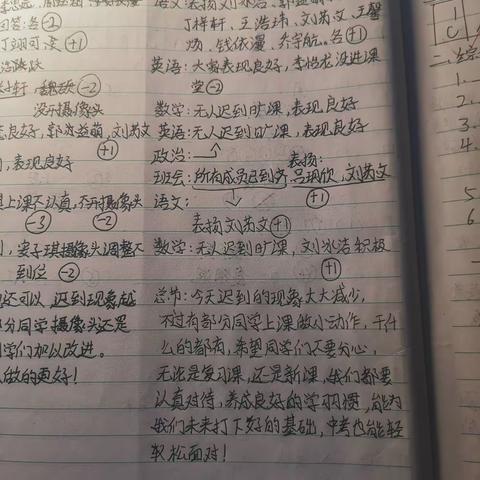 回答:各-2
丁翊可:凌+1
没开摄像头
良好,郭亦益萌,刘芮文
+1
,表现良好
上课不认真,不开摄像头
-3 -2
娄子琪摄像头调整不
到位 -2
还可以,迟到现象越
部分同学摄像头还是
同学们加以改进。
做的更好!
丁梓轩、王浩玮、刘芮文、王馨
钱依漫、乔宇航。各+1
英语:大家表现良好,李怡龙没进课
堂-2
数学:无人迟到旷课,表现良好
英语:无人迟到旷课,表现良好
政治:
表扬:
班会:所有成员已到齐,吕珮欣,刘芮文
+1
语文:
表扬刘芮文+1
数学:无人迟到旷课,刘冰洁积极
+1
总节:今天迟到的现象大大减少,
不过有部分同学上课做小动作,干什
么的都有,希望同学们不要分心,
无论是复习课,还是新课,我们都要
认真对待,养成良好的学习惯,能为
我们未来打下好的基础,中考也能轻
轻松面对!
1.
2.
3.
4.
5
6